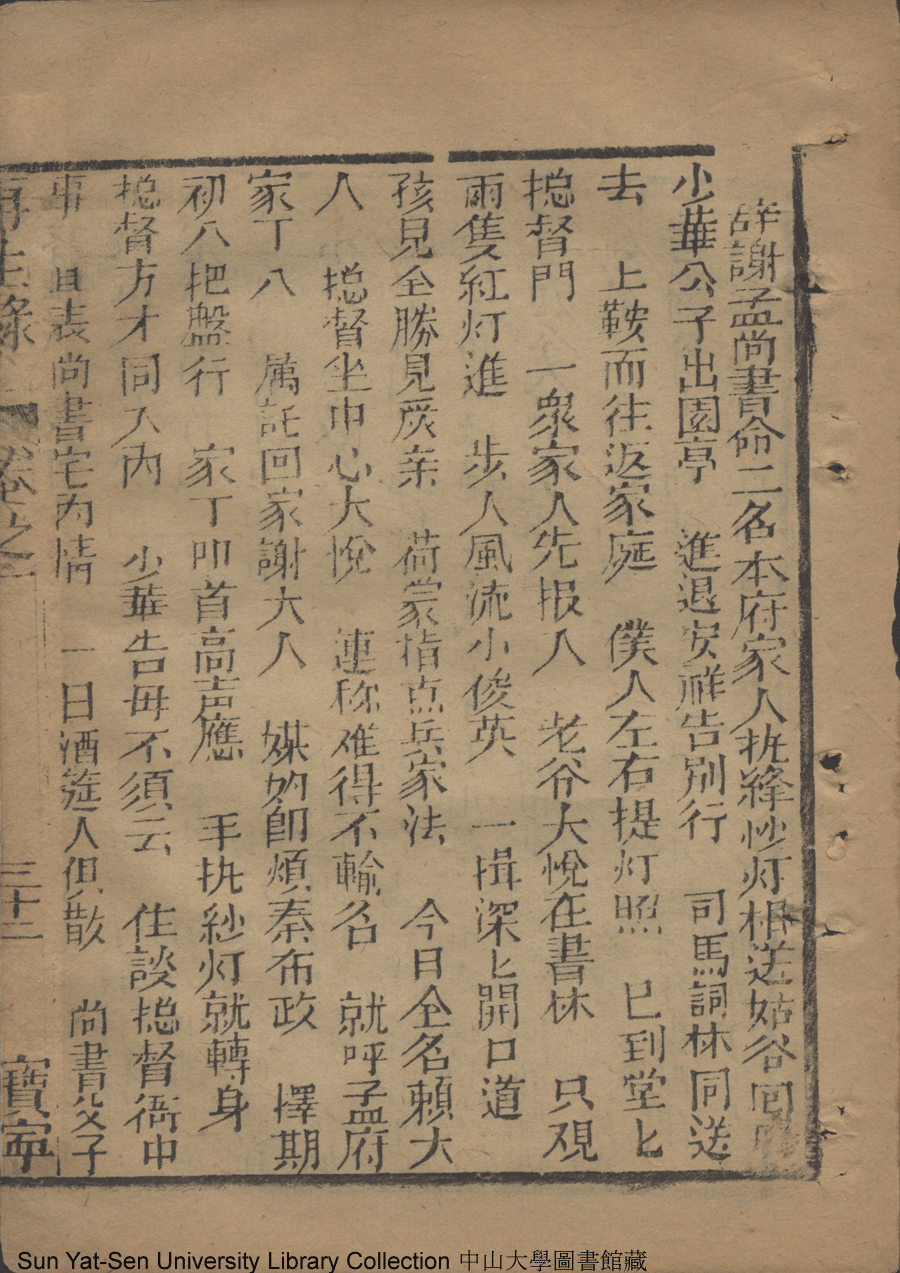 辞謝孟尚書命二名本府家人执絳炒灯相送姑谷回
少華公子出園亭　進退安祥告别行　司馬詞林同送
去　上鞍而往返家庭　僕人左右提灯照　已到堂〻
揔督門　一衆家人先报入　老谷大悅在書林　只观
兩隻紅灯進　步入風流小俊英　一揖深〻開口道
孩児全勝見庹亲　荷蒙指点兵家法　今日全名頼大
人　揔督坐中心大悅　連称难得不輸名　就呼孟府
家丁八　属託回家謝大人　媒妁即煩秦布政　擇期
初八把盤行　家丁叩首高声應　手执紗灯就轉身
揔督方才同入內　少華告毋不須云　住談揔督衙中
事　且表尚書宅內情　一日酒筵人俱散　尚書父子
再生緣　卷之　三十二　寶寧
Sun Yat-Sen University Library Collection 中山大學圖書館藏